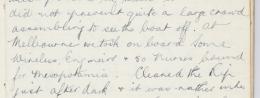 did not prevent quite a large crowd
assembling to see the boat off. At
Melbourne we took on board some
Wireless Engineers & 50 Nurses bound
for Mesopotamia. Cleared the Rip
just after dark & it was rather